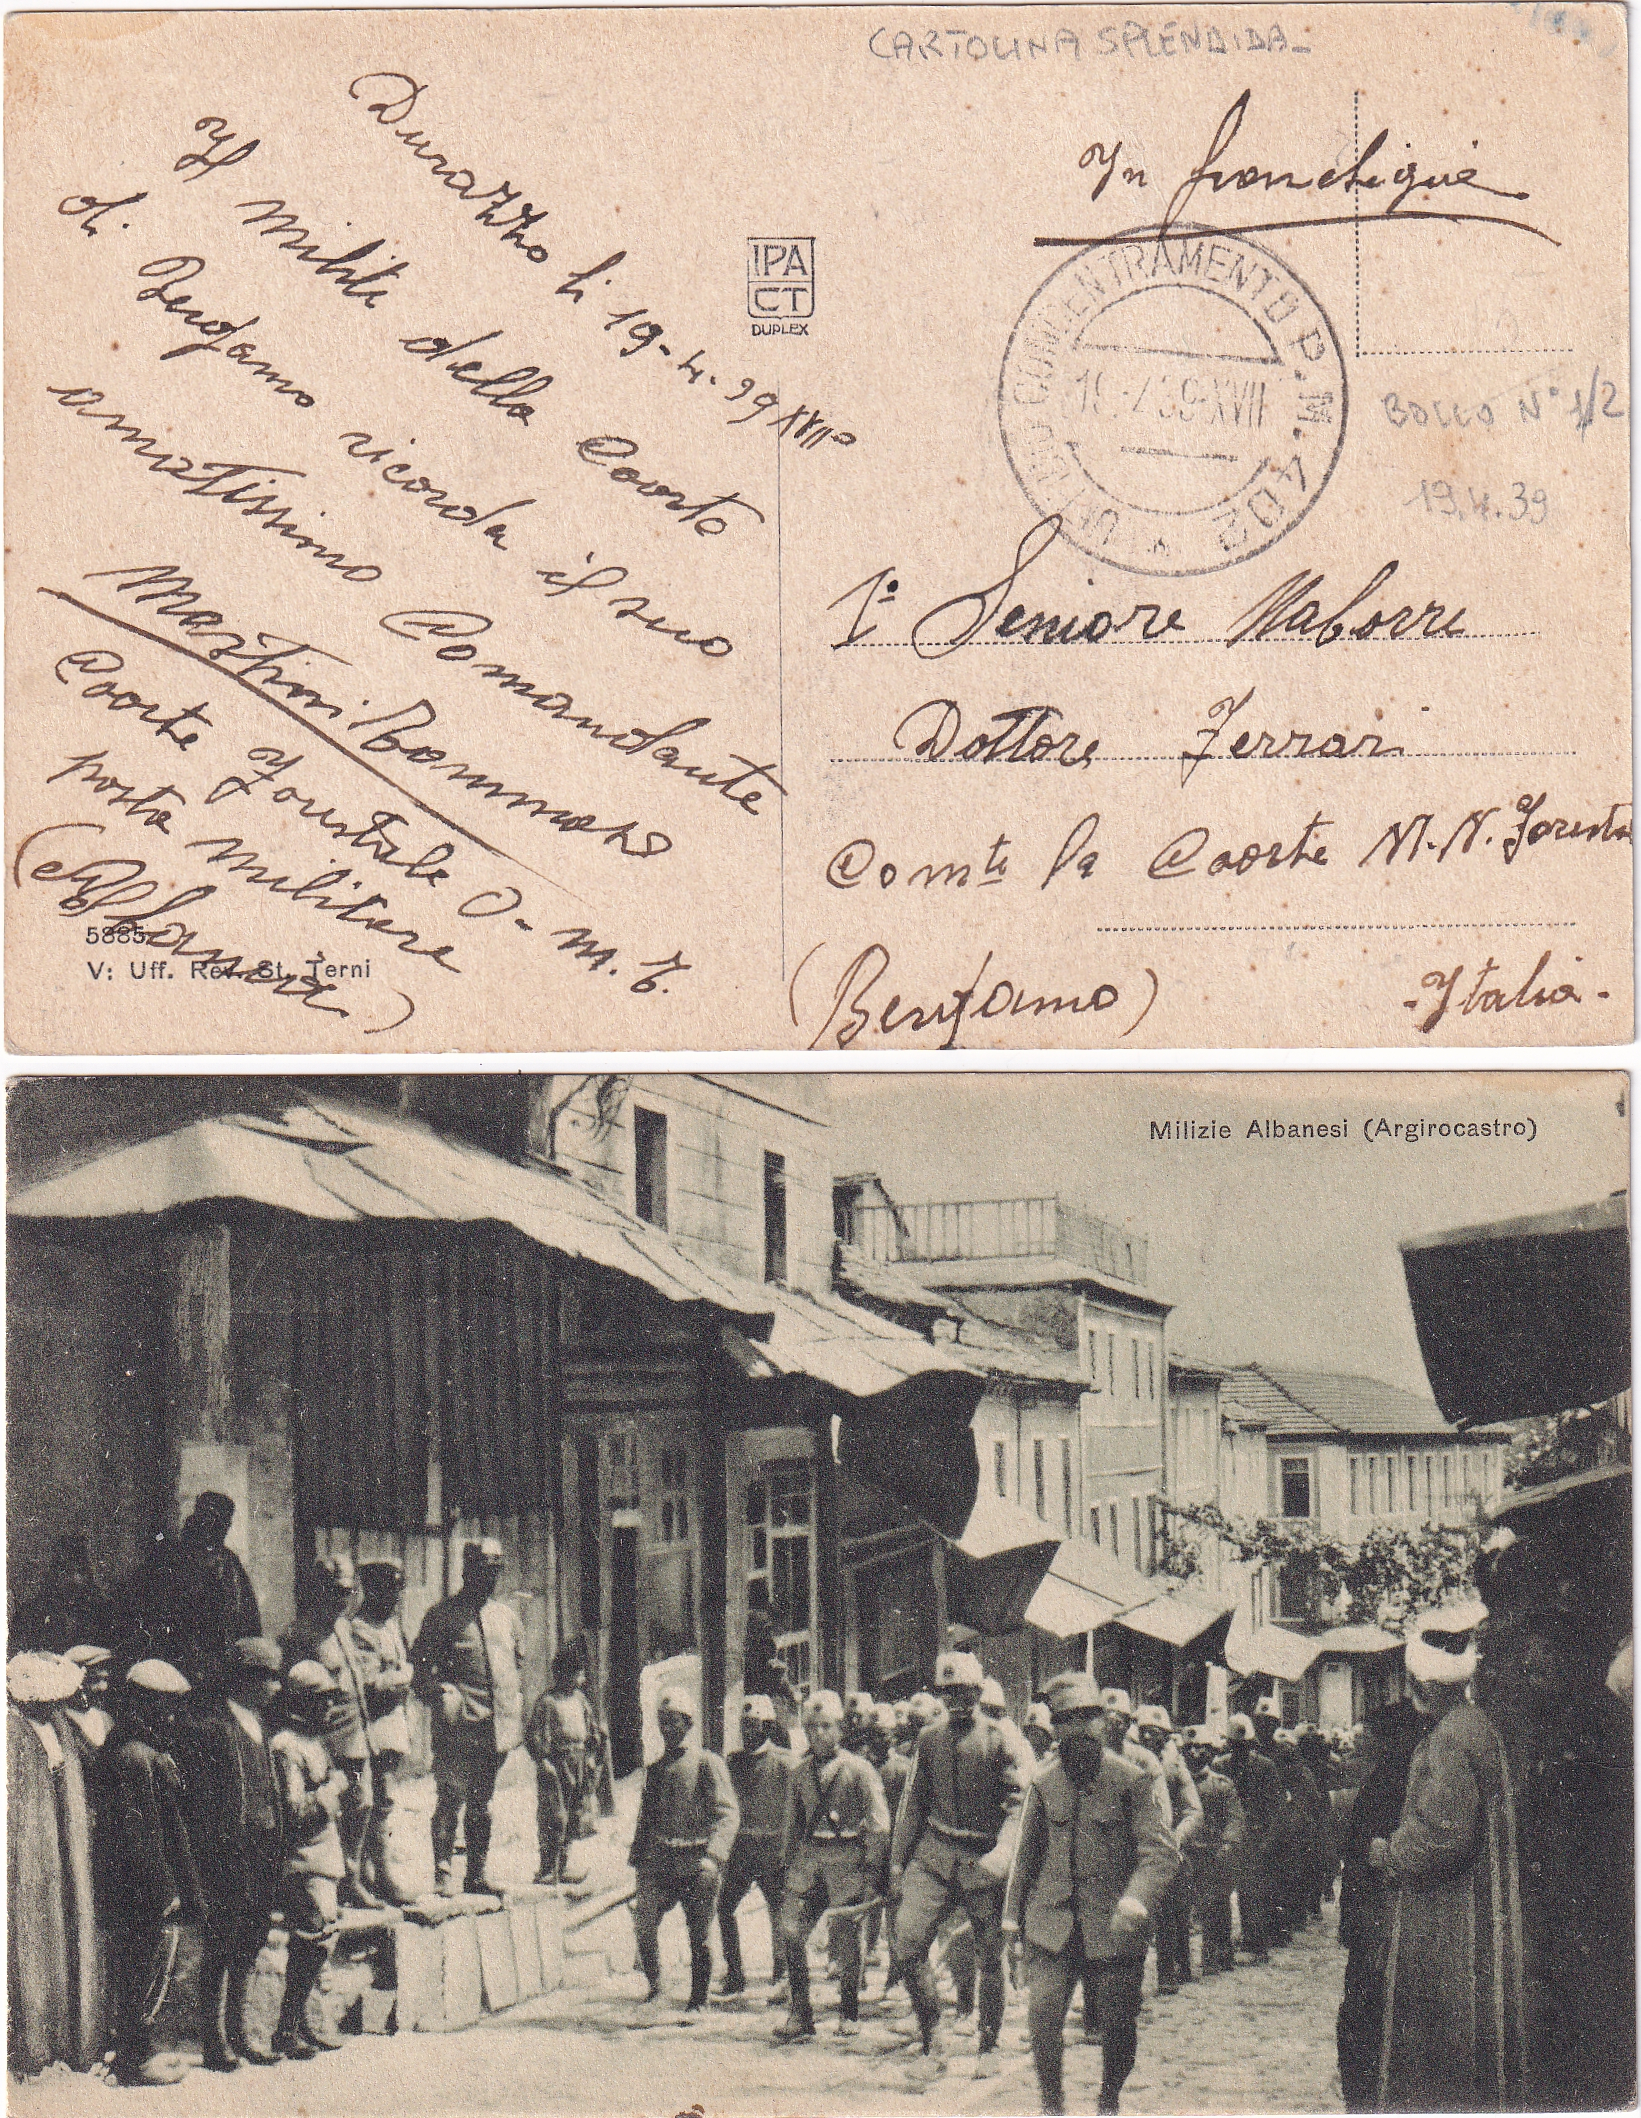 CARTOLINA SPLENDIDA
In franchigia
Durazzo li 19-4-39 XVII°
Il milite della Coorte
di Bergamo ricorda il suo
amatissimo Comandante
Martini Tommaso
Coorte Forestale O-M.T.
posta militare
(Albania)
IPA
CT
DUPLEX
CONCENTRAMENTO P.M. 402
19.4.39-XVII
BOLLO N° 1/2
19.4.39
1° Seniore Naborre
Dottore Ferrari
Comte la Coorte M.N. Foresta
(Bergamo) -Italia-
5885
V: Uff. Rev. St. Terni
Milizie Albanesi (Argirocastro)